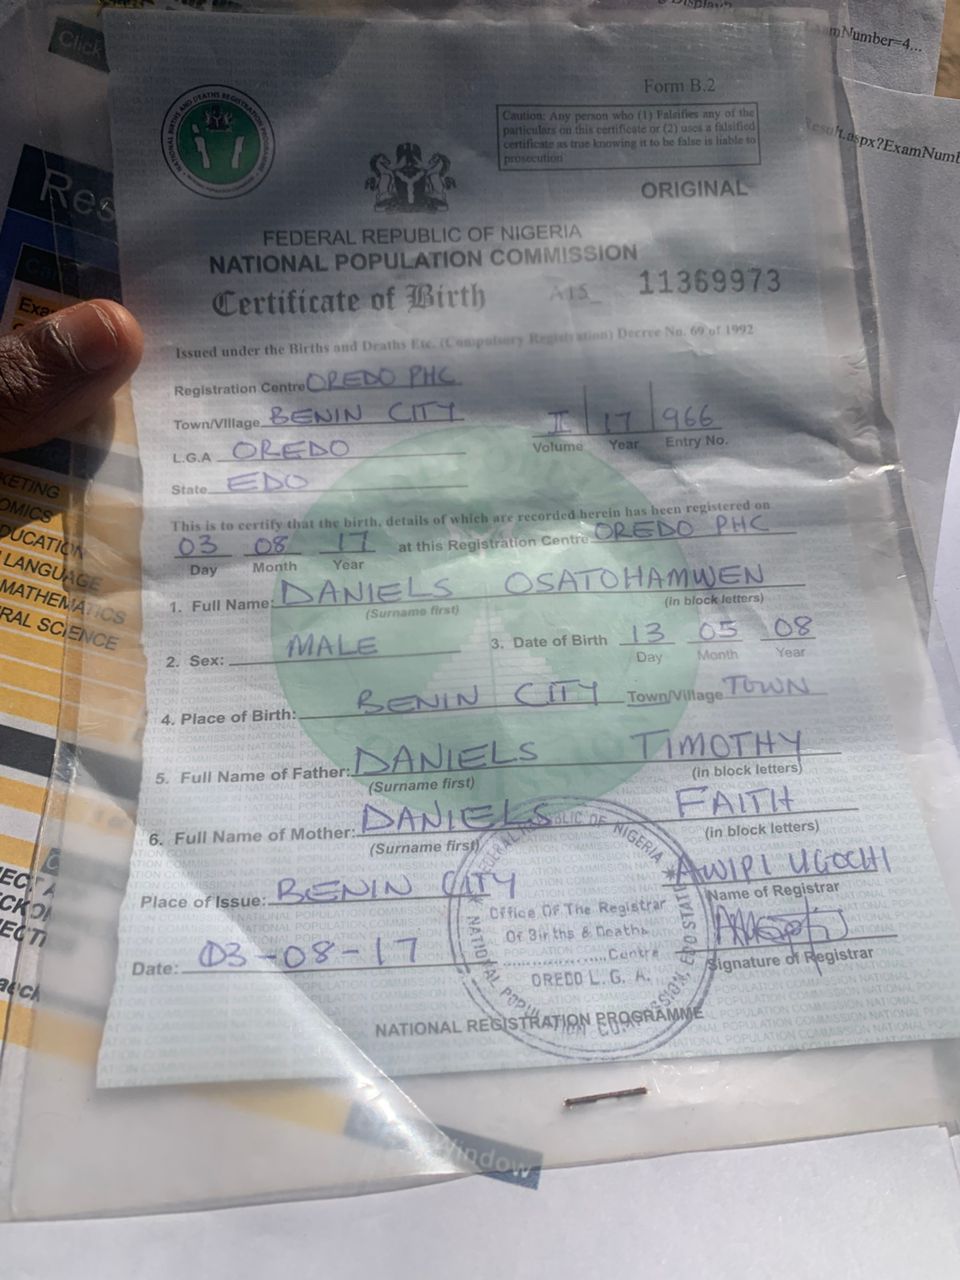 Click
Display?
amNumber=4...
Result.aspx?ExamNumb
Res
Form B.2
NATIONAL BIRTHS AND DEATHS REGISTRATION PROGRAMME
Caution: Any person who (1) Falsifies any of the
particulars on this certificate or (2) uses a falsified
certificate as true knowing it to be false is liable to
prosecution
ORIGINAL
FEDERAL REPUBLIC OF NIGERIA
NATIONAL POPULATION COMMISSION
Certificate of Birth A15_ 11369973
Issued under the Births and Deaths Etc. (Compulsory Registration) Decree No. 69 of 1992
Registration Centre OREDO PHC
Town/Village BENIN CITY II 17 966
Volume Year Entry No.
L.G.A OREDO
State EDO
This is to certify that the birth, details of which are recorded herein has been registered on
03 08 17 at this Registration Centre OREDO PHC
Day Month Year
1. Full Name: DANIELS OSATOHAMWEN
(Surname first) (in block letters)
2. Sex: MALE 3. Date of Birth 13 05 08
Day Month Year
4. Place of Birth: BENIN CITY Town/Village TOWN
5. Full Name of Father: DANIELS TIMOTHY
(Surname first) (in block letters)
6. Full Name of Mother: DANIELS FAITH
(Surname first) (in block letters)
AWIPI UGOCHI
Place of Issue: BENIN CITY Name of Registrar
Date: 03-08-17 Signature of Registrar
FEDERAL REPUBLIC OF NIGERIA
Office Of The Registrar
Of Births & Deaths
Centre
OREDO L. G. A.
NATIONAL POPULATION COMMISSION, EDO STATE
NATIONAL REGISTRATION PROGRAMME
KETING
OMICS
DUCATION
LANGUAGE
MATHEMATICS
RAL SCIENCE
Window